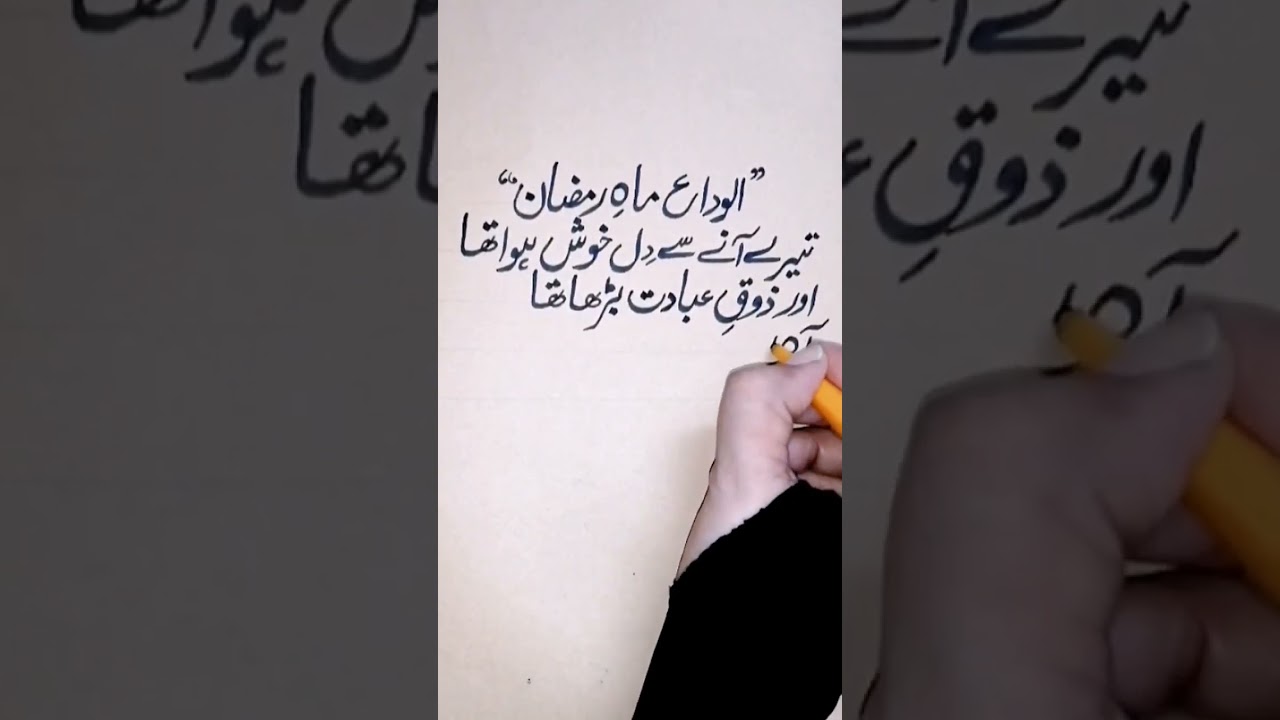 ”الوداع ماہِ رمضان“
تیرے آنے سے دِل خوش ہوا تھا
اور ذوقِ عبادت بڑھا تھا
آہ